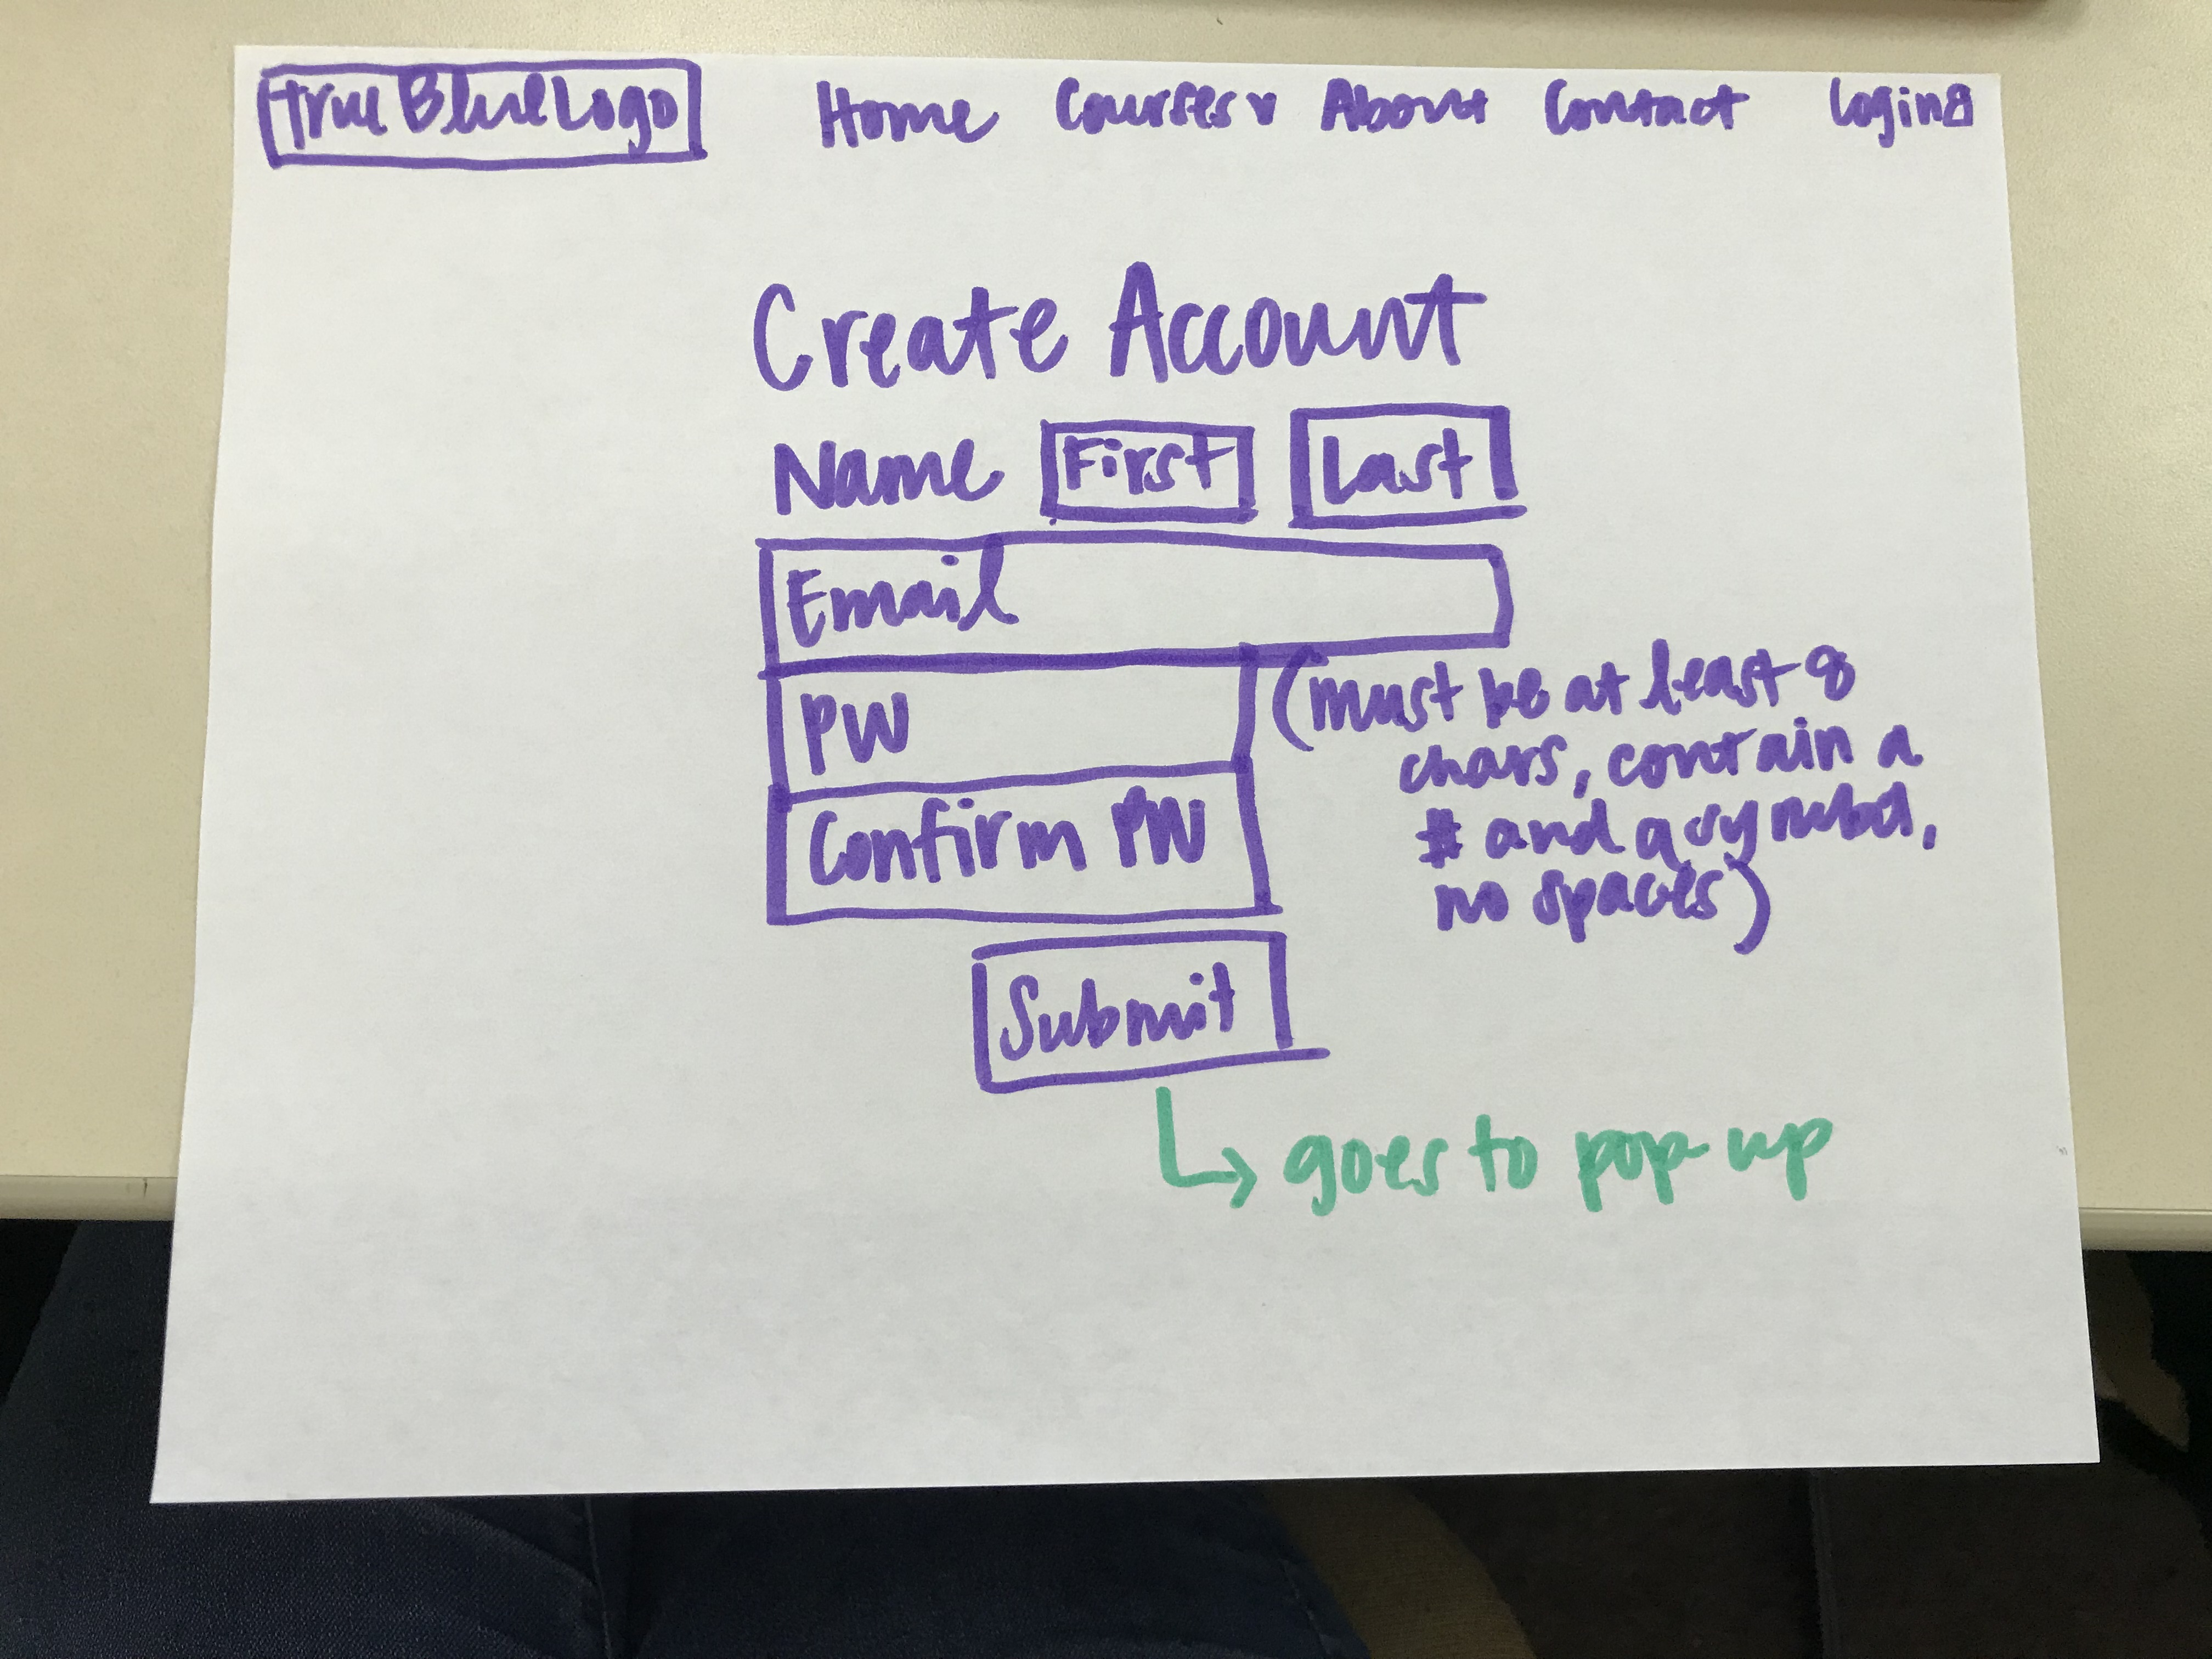 True Blue Logo Home Courses v About Contact Login
Create Account
Name First Last
Email
PW (must be at least 8
chars, contain a
# and a symbol,
no spaces)
Confirm PW
Submit
goes to pop-up